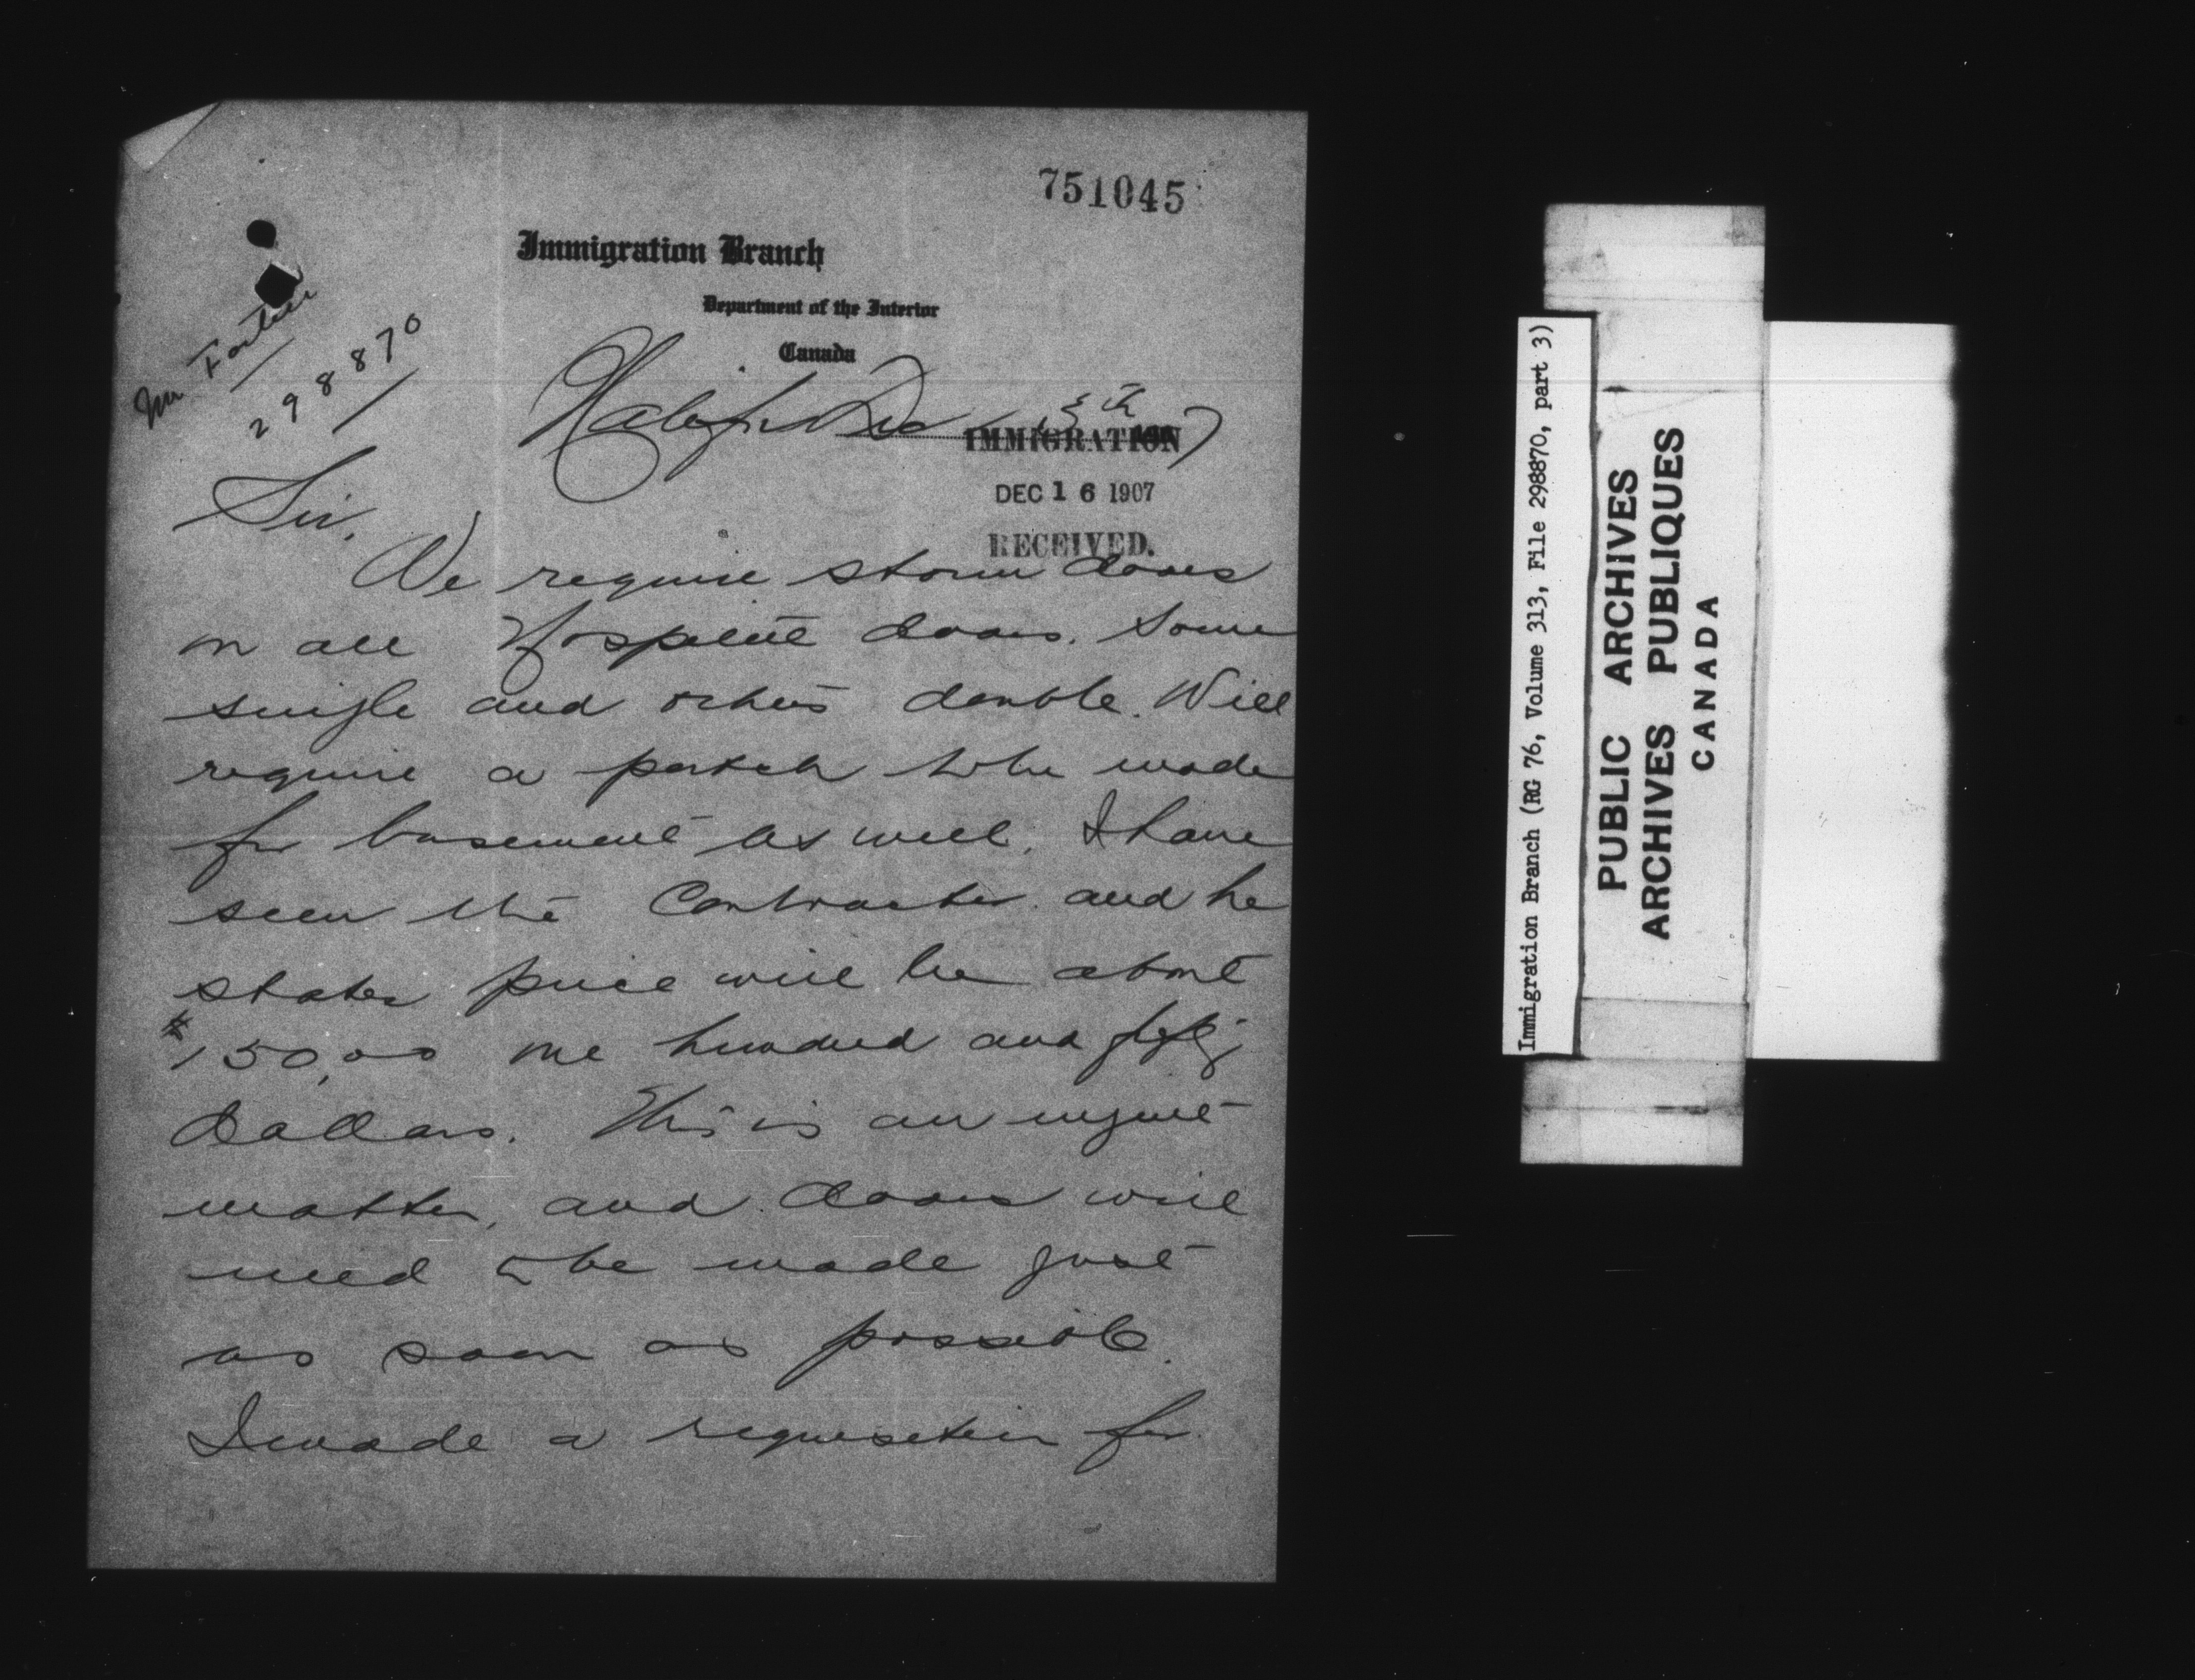 751045
Immigration Branch
Department of the Interior
Canada
Mr Fortier
298870
Halifax Dec 13th 1907
IMMIGRATION
DEC 16 1907
RECEIVED.
Sir,
We require storm doors
on all Hospital doors. Some
single and others double. Will
require a porch to be made
for basement as well. I have
seen the Contractor and he
states price will be about
$150.00 one hundred and fifty
dollars. This is an urgent
matter, and doors will
need to be made just
as soon as possible.
I made a requisition for
Immigration Branch (RG 76, Volume 313, File 298870, part 3)
PUBLIC ARCHIVES
ARCHIVES PUBLIQUES
CANADA